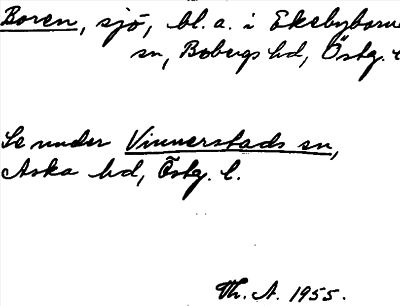 Boren, sjö, bl.a. i Ekebyborna
sn, Bobergs hd, Östg. l.
Se under Vinnerstads sn,
Aska hd, Östg. l.
Th. A. 1955.